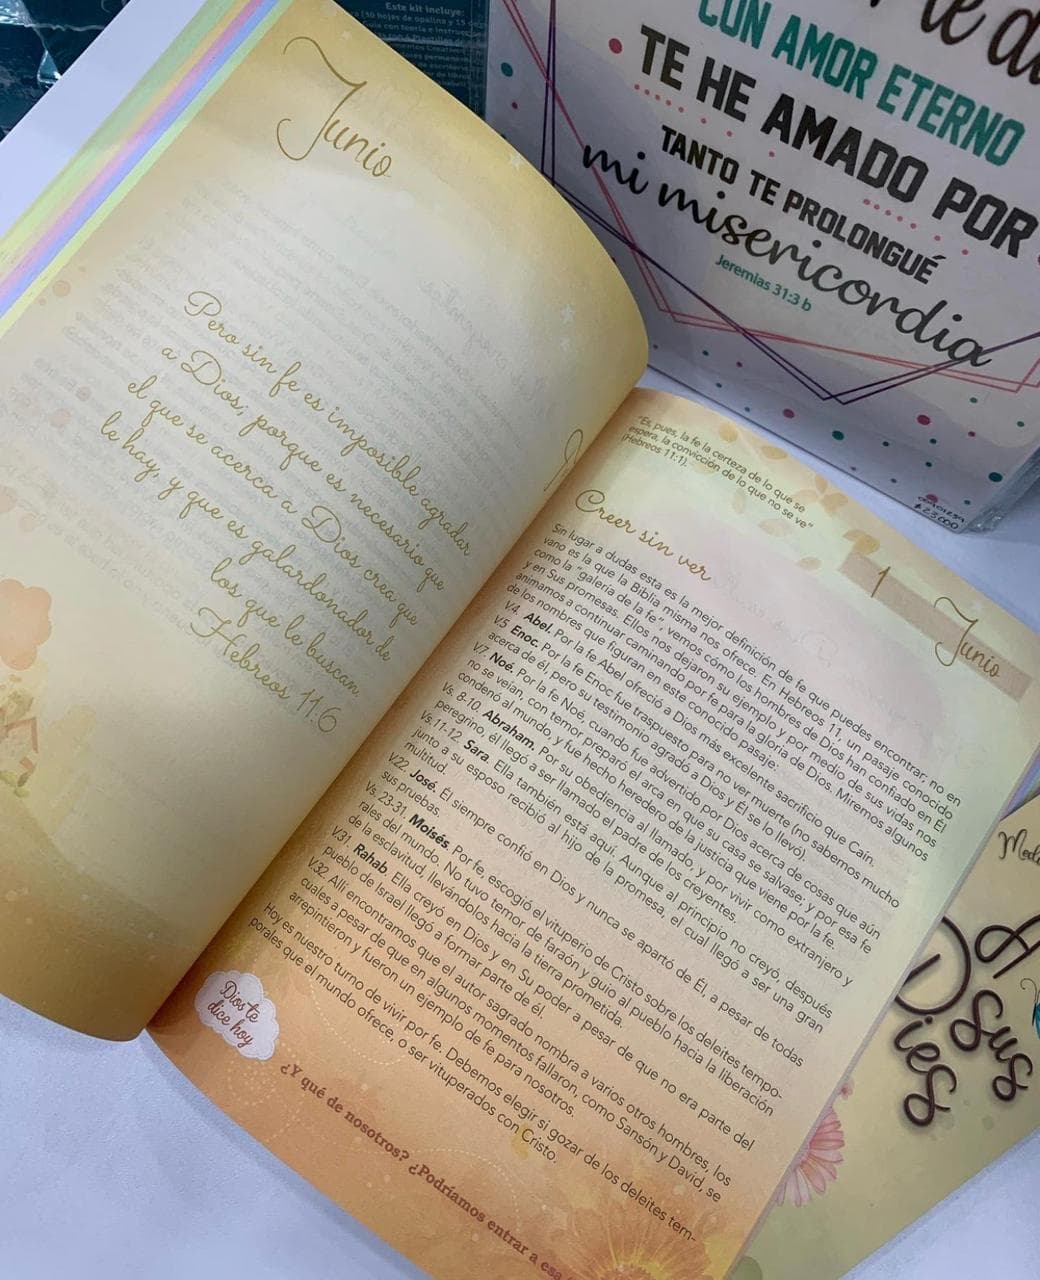 Este kit incluye:
CON AMOR ETERNO
TE HE AMADO POR
TANTO TE PROLONGUÉ
mi misericordia
Jeremías 31:3 b
$23.000
Junio
Pero sin fe es imposible agradar
a Dios; porque es necesario que
el que se acerca a Dios crea que
le hay, y que es galardonador de
los que le buscan.
Hebreos 11:6
"Es, pues, la fe la certeza de lo que se
espera, la convicción de lo que no se ve"
(Hebreos 11:1).
1 Junio
Creer sin ver
Sin lugar a dudas esta es la mejor definición de fe que puedes encontrar, no en
vano es la que la Biblia misma nos ofrece. En Hebreos 11, un pasaje conocido
como la "galería de la fe", vemos cómo los hombres de Dios han confiado en Él
y en Sus promesas. Ellos nos dejaron su ejemplo y por medio de sus vidas nos
animamos a continuar caminando por fe para la gloria de Dios. Miremos algunos
de los nombres que figuran en este conocido pasaje:
V.4. Abel. Por la fe Abel ofreció a Dios más excelente sacrificio que Caín.
V.5 Enoc. Por la fe Enoc fue traspuesto para no ver muerte (no sabemos mucho
acerca de él, pero su testimonio agradó a Dios y Él se lo llevó).
V.7 Noé. Por la fe Noé, cuando fue advertido por Dios acerca de cosas que aún
no se veían, con temor preparó el arca en que su casa se salvase; y por esa fe
condenó al mundo, y fue hecho heredero de la justicia que viene por la fe.
Vs. 8-10. Abraham. Por su obediencia al llamado, y por vivir como extranjero y
peregrino, él llegó a ser llamado el padre de los creyentes.
Vs.11-12. Sara. Ella también está aquí. Aunque al principio no creyó, después
junto a su esposo recibió al hijo de la promesa, el cual llegó a ser una gran
multitud.
V.22 José. Él siempre confió en Dios y nunca se apartó de Él, a pesar de todas
sus pruebas.
Vs. 23-31. Moisés. Por fe, escogió el vituperio de Cristo sobre los deleites tempo-
rales del mundo. No tuvo temor de faraón y guio al pueblo hacia la liberación
de la esclavitud, llevándolos hacia la tierra prometida.
V.31. Rahab. Ella creyó en Dios y en Su poder a pesar de que no era parte del
pueblo de Israel llegó a formar parte de él.
V.32. Allí encontramos que el autor sagrado nombra a varios otros hombres, los
cuales a pesar de que en algunos momentos fallaron, como Sansón y David, se
arrepintieron y fueron un ejemplo de fe para nosotros.
Hoy es nuestro turno de vivir por fe. Debemos elegir si gozar de los deleites tem-
porales que el mundo ofrece, o ser vituperados con Cristo.
Dios te
dice hoy
¿Y qué de nosotros? ¿Podríamos entrar a esa
A sus
Pies